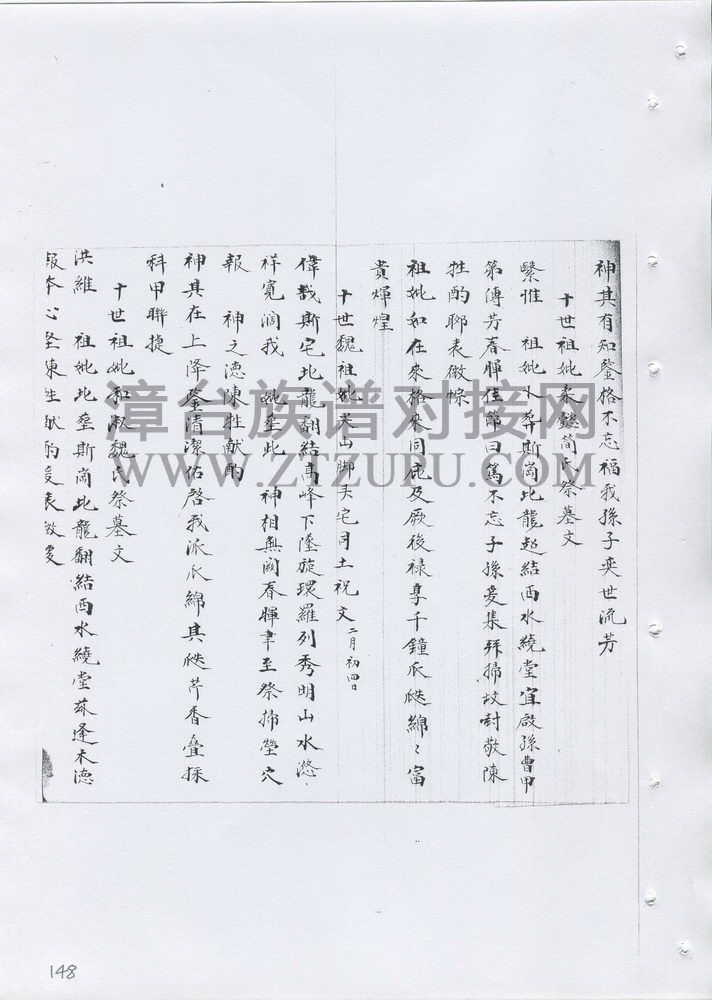 神其有知鑒格不忘福我孫子奕世流芳
十世祖妣柔懿簡氏祭墓文
繄惟 祖妣卜葬斯崗比龍起結西水繞堂宜啟孫曹甲
第傳芳春暉佳節曰篤不忘子孫爰集拜掃坟封敬陳
牲酌聊表微悰
祖妣如在來格來同庇及厥後祿享千鐘瓜瓞綿〻富
貴煇煌
十世魏祖妣 山脚头宅同土祝文 二月初四日
偉哉斯宅北龍翻結高峰下墜旋環羅列秀明山水 〻
祥寬润我 妣塋此 神相無闕春暉聿至祭掃塋穴
報 神之德陳牲献酌
神其在上降鑒清潔佑啓我派瓜綿其瓞芹香叠採
科甲聯捷
十世祖妣和淑魏氏祭墓文
洪維 祖妣比塋斯崗北龍翻結西水繞堂兹逢木德
報本心 陳牲献酌爰表微
漳台族谱对接网
WWW.ZTZUPU.COM
148